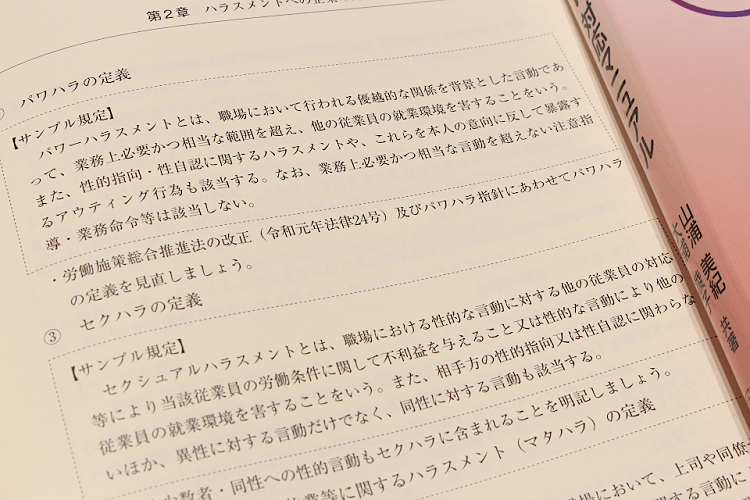 第2章 ハラスメントへの企業
パワハラの定義
【サンプル規定】
パワーハラスメントとは、職場において行われる優越的な関係を背景とした言動であ
って、業務上必要かつ相当な範囲を超え、他の従業員の就業環境を害することをいう。
また、性的指向・性自認に関するハラスメントや、これらを本人の意向に反して暴露す
るアウティング行為も該当する。なお、業務上必要かつ相当な言動を超えない注意指
導・業務命令等は該当しない。
・労働施策総合推進法の改正（令和元年法律24号）及びパワハラ指針にあわせてパワハラ
の定義を見直しましょう。
③ セクハラの定義
【サンプル規定】
セクシュアルハラスメントとは、職場における性的な言動に対する他の従業員の対応
等により当該従業員の労働条件に関して不利益を与えること又は性的な言動により他の
従業員の就業環境を害することをいう。また、相手方の性的指向又は性自認に関わらな
いほか、異性に対する言動だけでなく、同性に対する言動も該当する。
少数者・同性への性的言動もセクハラに含まれることを明記しましょう。
業等に関するハラスメント（マタハラ）の定義
場において、上司や同僚が
に関する言動によ
対応マニュアル
山浦 美紀
共著